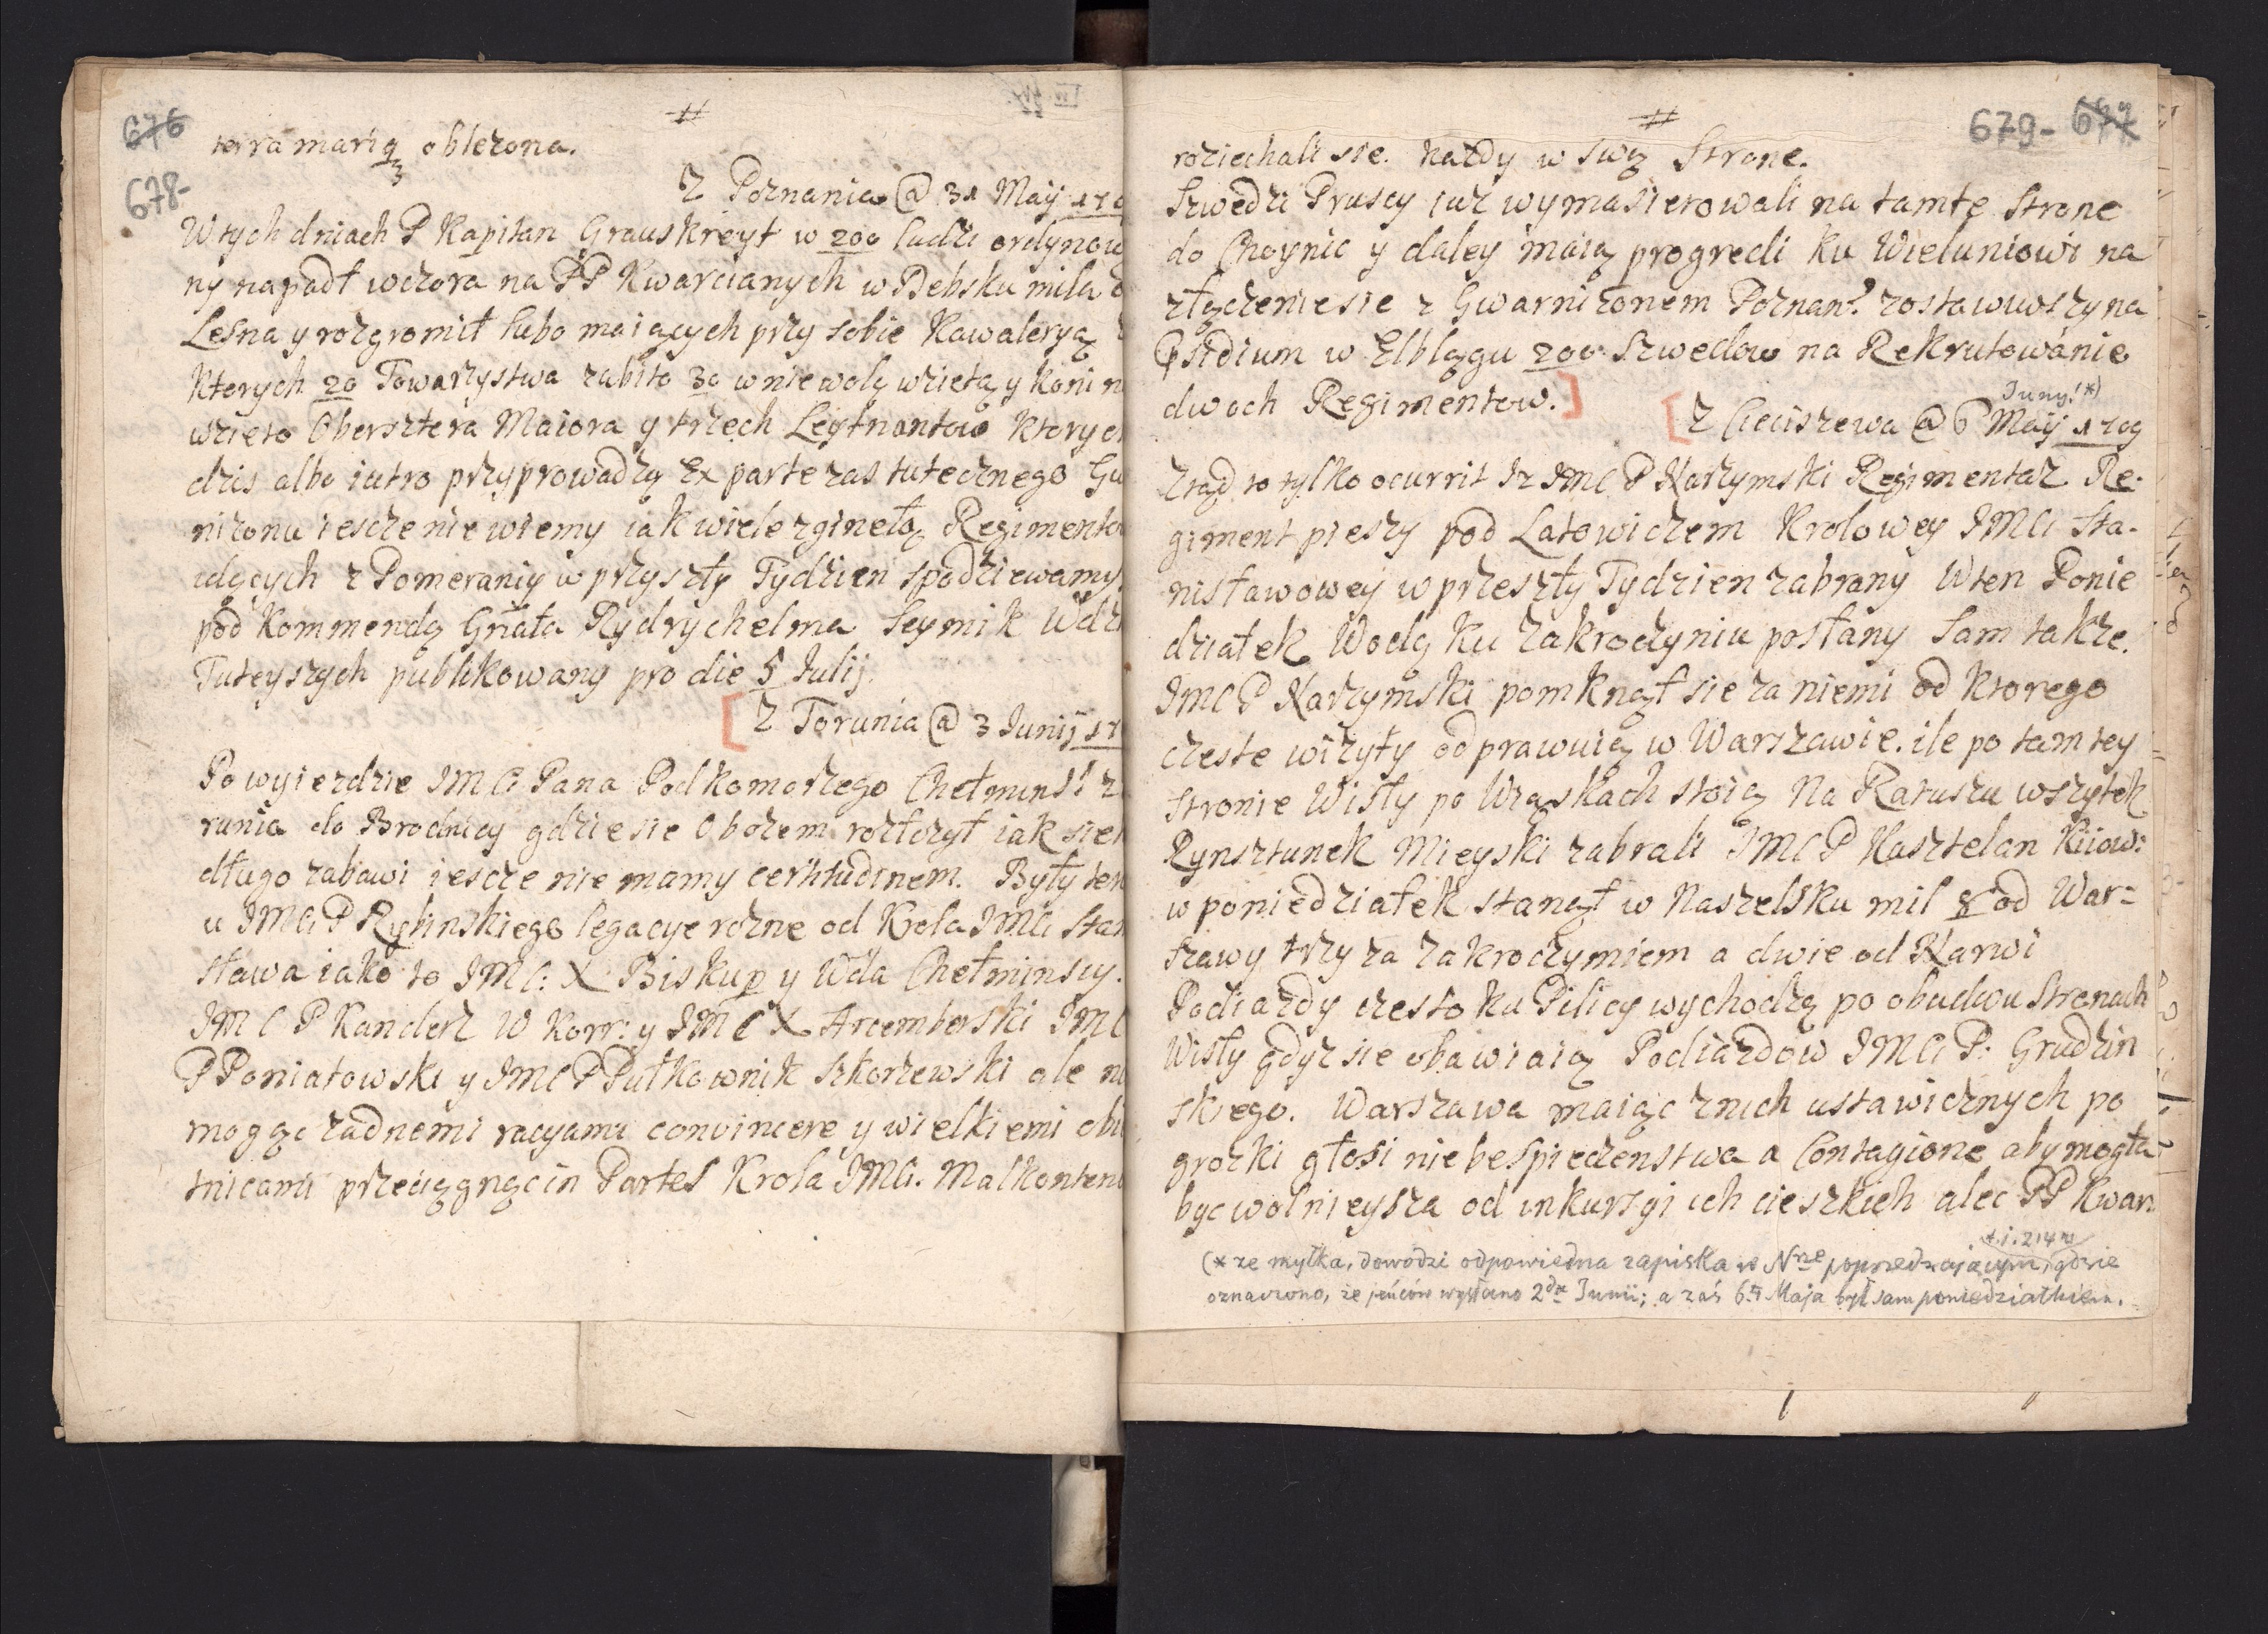 676
678-
#
terra mariq3 oblezona.
Z Poznania @ 31 Maij 170
W tych dniach P Kapitan Grauskreyt w 200 ludzi ordynow
ny napadł wczora na PP Kwarcianych w Debsku mila
Lesna y rozgromił lubo maiących przy sobie Kawaleryą
Ktorych 20 Towarzystwa zabito 30 w niewolą wzietą y koni
wzieto Obersztera Maiora y trzech Leytnantow Ktorych
dzis albo iutro przyprowadzą Ex parte zas tutecznego Gu
nizonu iescze nie wiemy iak wiele zginełą Regimento
idących z Pomeraniy w przyszły Tydzien spodziewamy
pod Kommendą Gnała Rydrychelma Seymik Wdz
Tuteyszych publikowany pro die 5 Julij.
[Z Torunia @ 3 Junij 17
Po wyiezdzie IMCi Pana Podkomorzego Chełminsi z
runia do Brodnicy gdzie sie Obozem rozłozył iak sie
długo zabawi iescze nie mamy certitudinem. Były ten
u IMCi P Rybinskiego legacye rozne od Krola IMCi Stan
sława iako to IMC: X Biskup y Wda Chełminscy.
IMC P Kanclerz W Korr: y IMC X Arcemberski IMC
P Poniatowski y IMC P Pułkownik Szkorzewski ale ni
mogąc zadnemi racyami convincere y wielkiemi obi
tnicami przeciągnąc in Partes Krola IMCi. Malkonten
#
679- 677
roziechali sie. kazdy w swą Strone.
Szwedzi Pruscy iuz wymasierowali na tamtę Strone
do Choynic y daley maią progredi ku Wieluniowi na
złączenie sie z Gwarnizonem Poznan? zostawuwszy na
Psidium w Elblągu 200 Szwedow na Rekrutowanie
dwoch Regimentow.]
Juny! *)
[Z Cieciszewa @ 6 Maij 1709
Ztąd to tylko ocurrit Iz IMC P Narzymski Regimentarz Re-
giment pieszy pod Latowiczem Krolowey IMCi Sta-
nisławowey w przeszły Tydzien zabrany W ten Ponie
działek Wodą ku Zakroczyniu posłany Sam takze.
IMC P Narzymski pomknął sie za niemi od ktorego
czeste wizyty odprawuią w Warszawie. ile po tamtey
stronie Wisły po Wząskach stoią Na Ratuszu wszytek
Rynsztunek Mieyski zabrali IMC P Kasztelan Kiiow:
w poniedziałek stanął w Naszelsku mil 8 od War=
szawy trzy za Zakroczymiem a dwie od Narwi
Podiazdy czesto ku Pilicy wychodzą po obudwu Stronach
Wisły gdyz sie obawiaią Podiazdow IMCi P: Grudzin
skiego. Warszawa maiąc znich ustawicznych po
grozki głosi niebespieczenstwa a Contagione aby mogła
byc wolnieysza od inkursyi ich cieszkich alec PP Kwar
t.j. 214
(* ze myłka, dowodzi odpowiedna zapiska w Nrze poprzedzającym, gdzie
oznaczono, że jeńców wysłano 2da Junii; a zaś 6ty Maja był sam poniedziałkiem.